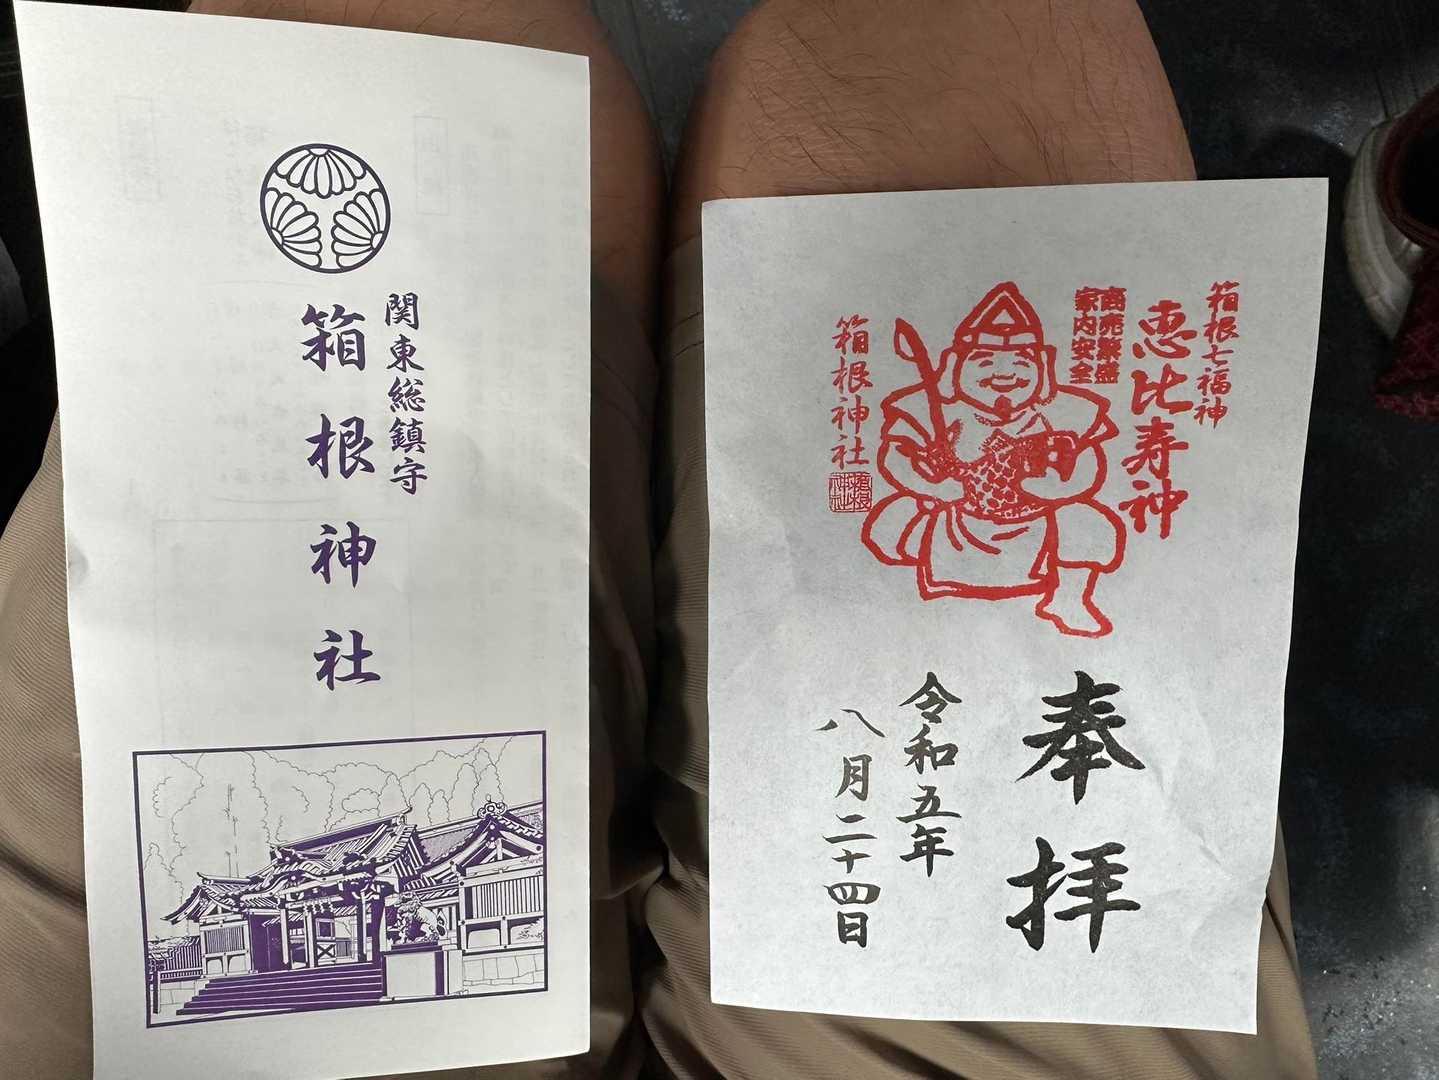 関東総鎮守
箱根神社
箱根七福神
恵比寿神
商売繁盛
家内安全
箱根神社
奉拝
令和五年
八月二十四日